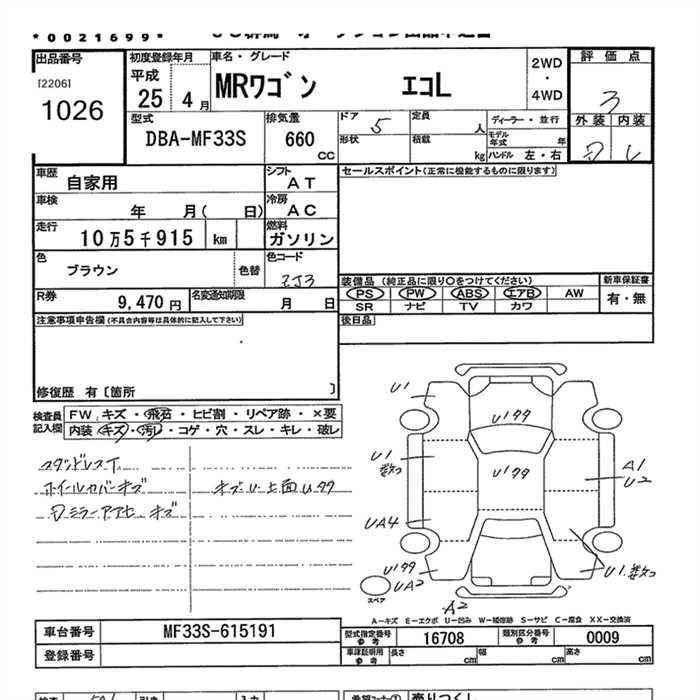 *0021699*
出品番号
[2206]
1026
初度登録年月
平成
25 4月
車名・グレード
MRワゴン エコL
2WD
・
4WD
評価点
3
外装 内装
型式
DBA-MF33S
排気量
660
cc
ドア
5
定員
人
形状
積載
kg
ディーラー・並行
モデル
年式
年
ハンドル 左・右
車歴
自家用
シフト
AT
車検
年 月( 日)
冷房
AC
走行
10万5千915 km
燃料
ガソリン
色
ブラウン
色替
色コード
ZJ3
R券
9,470 円
名変通知期限
月 日
セールスポイント(正常に機能するものに限ります)
装備品 (純正品に限り○をつけてください)
PS PW ABS エアB AW
SR ナビ TV カワ
新車保証書
有・無
後日品
注意事項申告欄(不具合内容等は具体的に記入して下さい)
修復歴 有〔箇所 〕
検査員
記入欄
FW:キズ・飛石・ヒビ割・リペア跡・×要
内装:キズ・汚れ・コゲ・穴・スレ・キレ・破レ
スタッドレスT
ホイールカバーキズ
キズU・上面U99
U1
U199
U1
U199
A1
U2
UA4
U199
UA2
U1
A2
スペア
A-キズ E-エクボ U-凹み W-補修跡 S-サビ C-腐食 XX-交換済
車台番号
MF33S-615191
登録番号
型式指定番号
参考
16708
類別区分番号
参考
0009
車庫証明用
参考
長さ
cm
幅
cm
高さ
cm
売りつくし